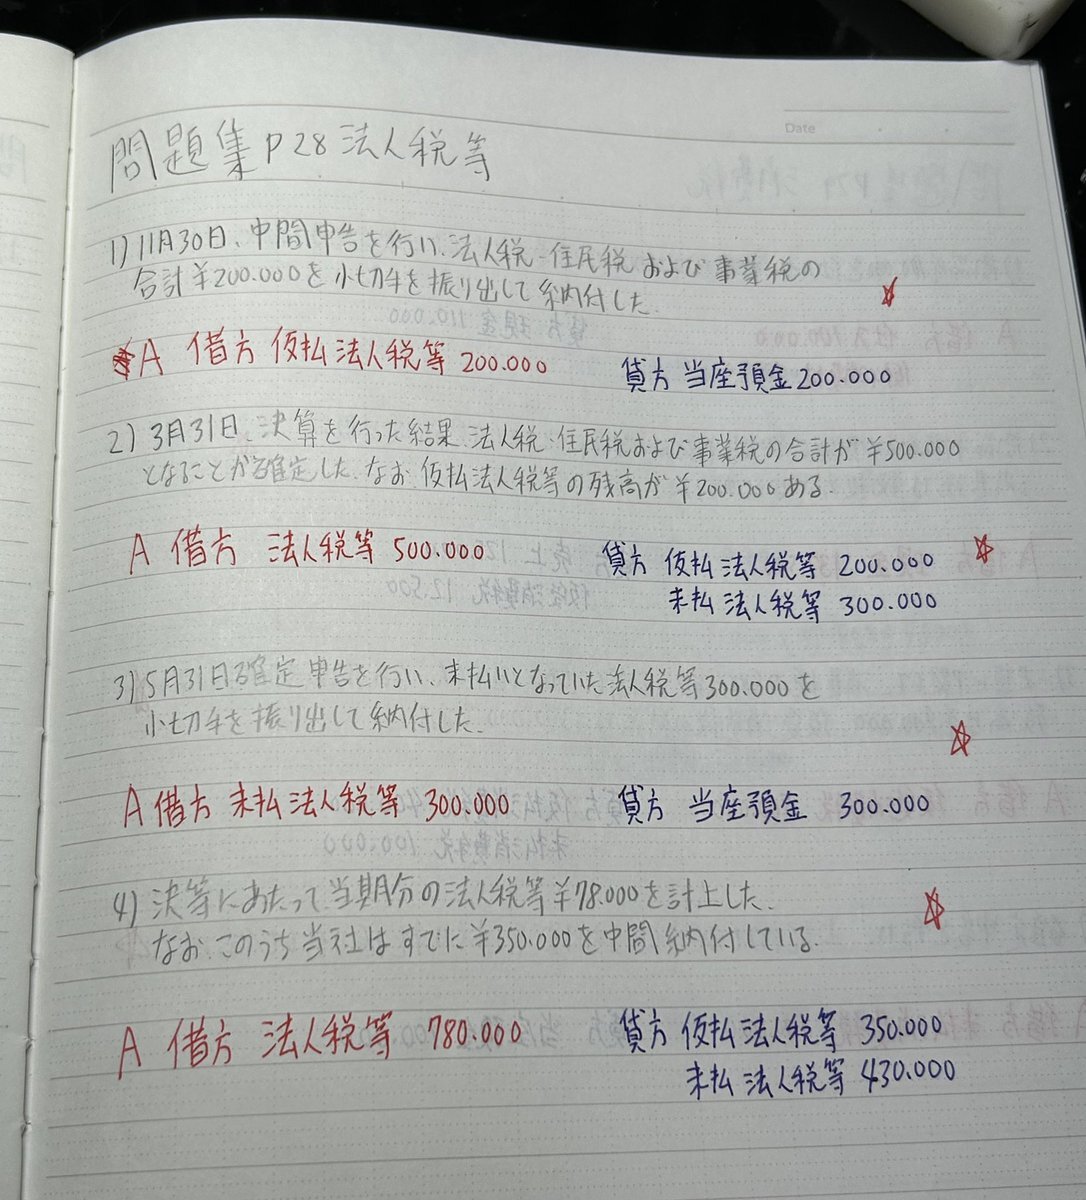 Date
問題集P28法人税等
1) 11月30日、中間申告を行い、法人税・住民税および事業税の
合計¥200.000を小切手を振り出して納付した.
A 借方 仮払法人税等 200.000 貸方 当座預金 200.000
2) 3月31日、決算を行った結果、法人税・住民税および事業税の合計が¥500.000
となることが確定した. なお 仮払法人税等の残高が¥200.000ある.
A 借方 法人税等 500.000 貸方 仮払法人税等 200.000
未払法人税等 300.000
3) 5月31日確定申告を行い、未払いとなっていた法人税等300.000を
小切手を振り出して納付した.
A 借方 未払法人税等 300.000 貸方 当座預金 300.000
4) 決等にあたって当期分の法人税等¥78.000を計上した.
なお、このうち当社はすでに¥350.000を中間納付している.
A 借方 法人税等 780.000 貸方 仮払法人税等 350.000
未払法人税等 430.000